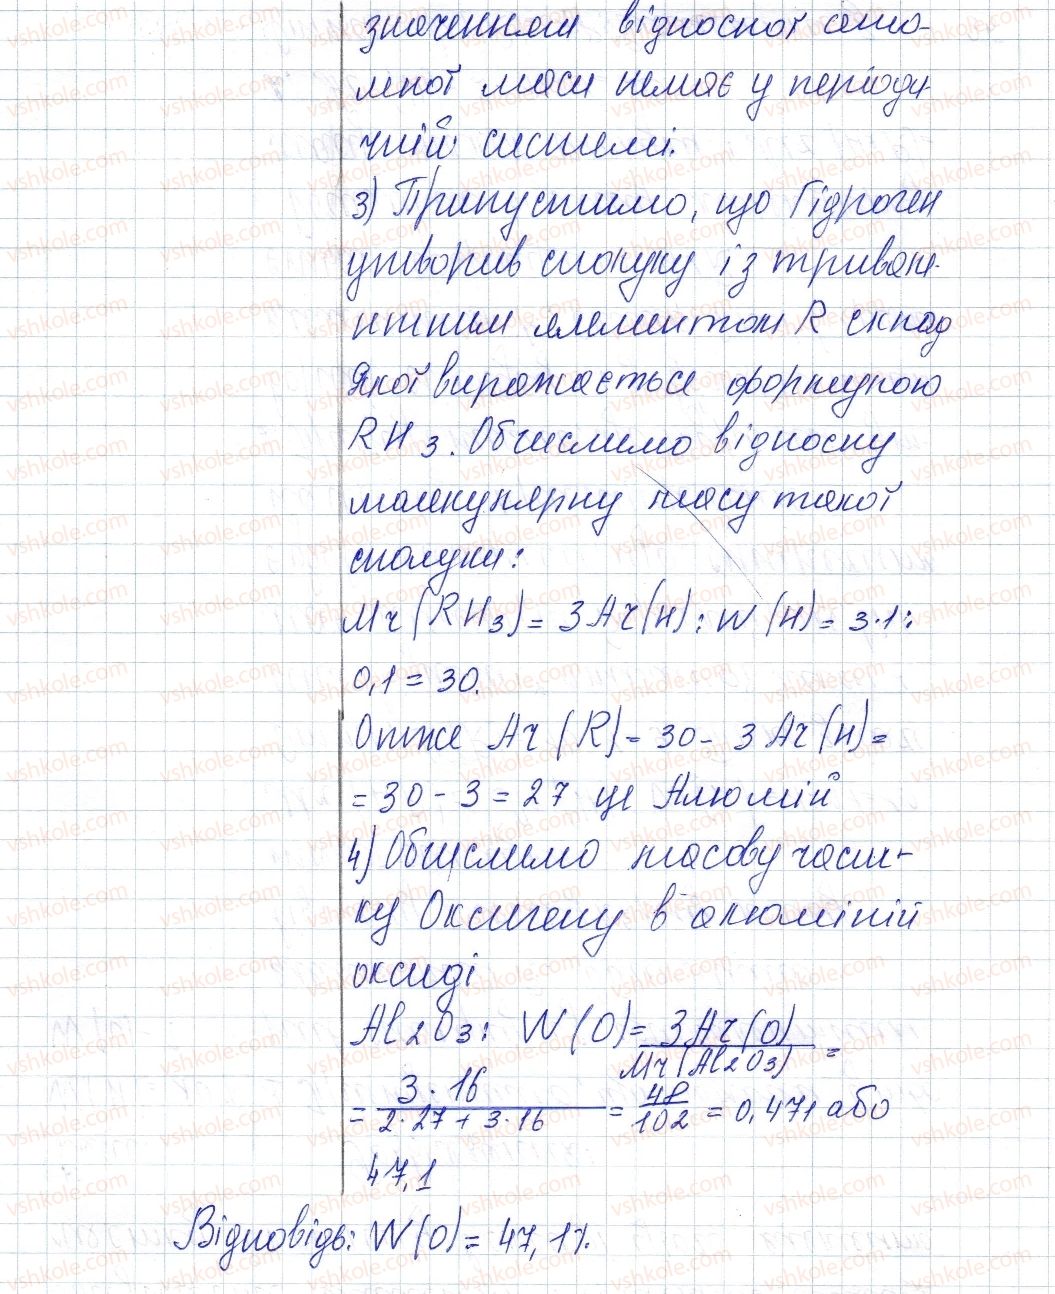 значенням відносної ато-
мної маси немає у періоди
чній системі.
3) Припустимо, що Гідроген
утворив сполуку із тривале-
нтним елементом R склад
якої виражається формулою
RH3. Обчислимо відносну
молекулярну масу такої
сполуки:
Mr(RH3) = 3Ar(H) : W(H) = 3·1:
0,1 = 30.
Отже Ar(R) = 30 - 3Ar(H) =
= 30 - 3 = 27 це Алюміній
4) Обчислимо масову част-
ку Оксигену в алюміній
оксиді
Al2O3: W(O) = 3Ar(O) / Mr(Al2O3) =
= 3·16 / 2·27 + 3·16 = 48/102 = 0,471 або
47,1
Відповідь: W(O) = 47,1%.